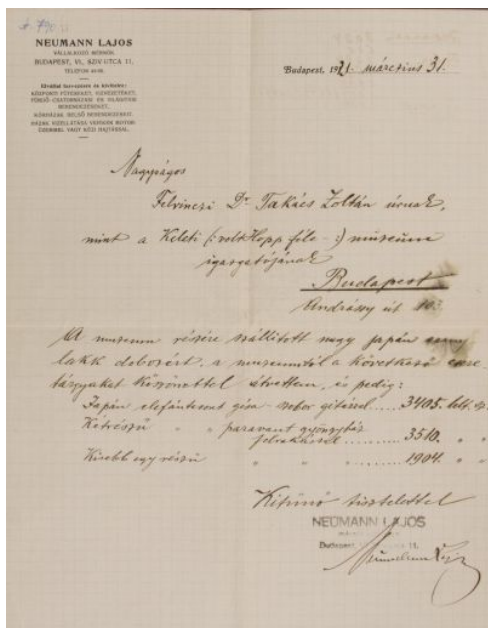 NEUMANN LAJOS
VÁLLALKOZÓ MÉRNÖK
BUDAPEST, VI., SZIV UTCA 11,
TELEFON
Budapest, 1921. március 31.
Elvállal tervezését és kivitelét:
KÖZPONTI FŰTÉSEKET, VIZVEZETÉKET,
FÜRDŐ CSATORNÁZÁSI ÉS VILÁGITÁSI
BERENDEZÉSEKET,
KÓRHÁZAK BELSŐ BERENDEZÉSÉT.
HÁZAK VIZELLÁTÁSA VÁROSOK MOTOR
ÜZEMMEL VAGY KÉZI HAJTÁSSAL.
Nagyságos
Felvinczi Dr Takács Zoltán úrnak,
mint a Keleti (: volt Hopp féle - :) múzeum
igazgatójának
Budapest
Andrássy út 103
A muzeum részére szállított nagy japán arany
lakk dobozért, a muzeumtól a következő csere
tárgyakat köszönettel átvettem, és pedig:
Japán elefántcsont gésa - szobor gitárral .... 3405. lelt. sz.
Kétrészű " " paravant gyöngyház
felrakással .......... 3510. " "
Kisebb egy részü " " " .......... 1904. " "
Kitünő tisztelettel
NEUMANN LAJOS
Budapest, 11.
Neumann Lajos